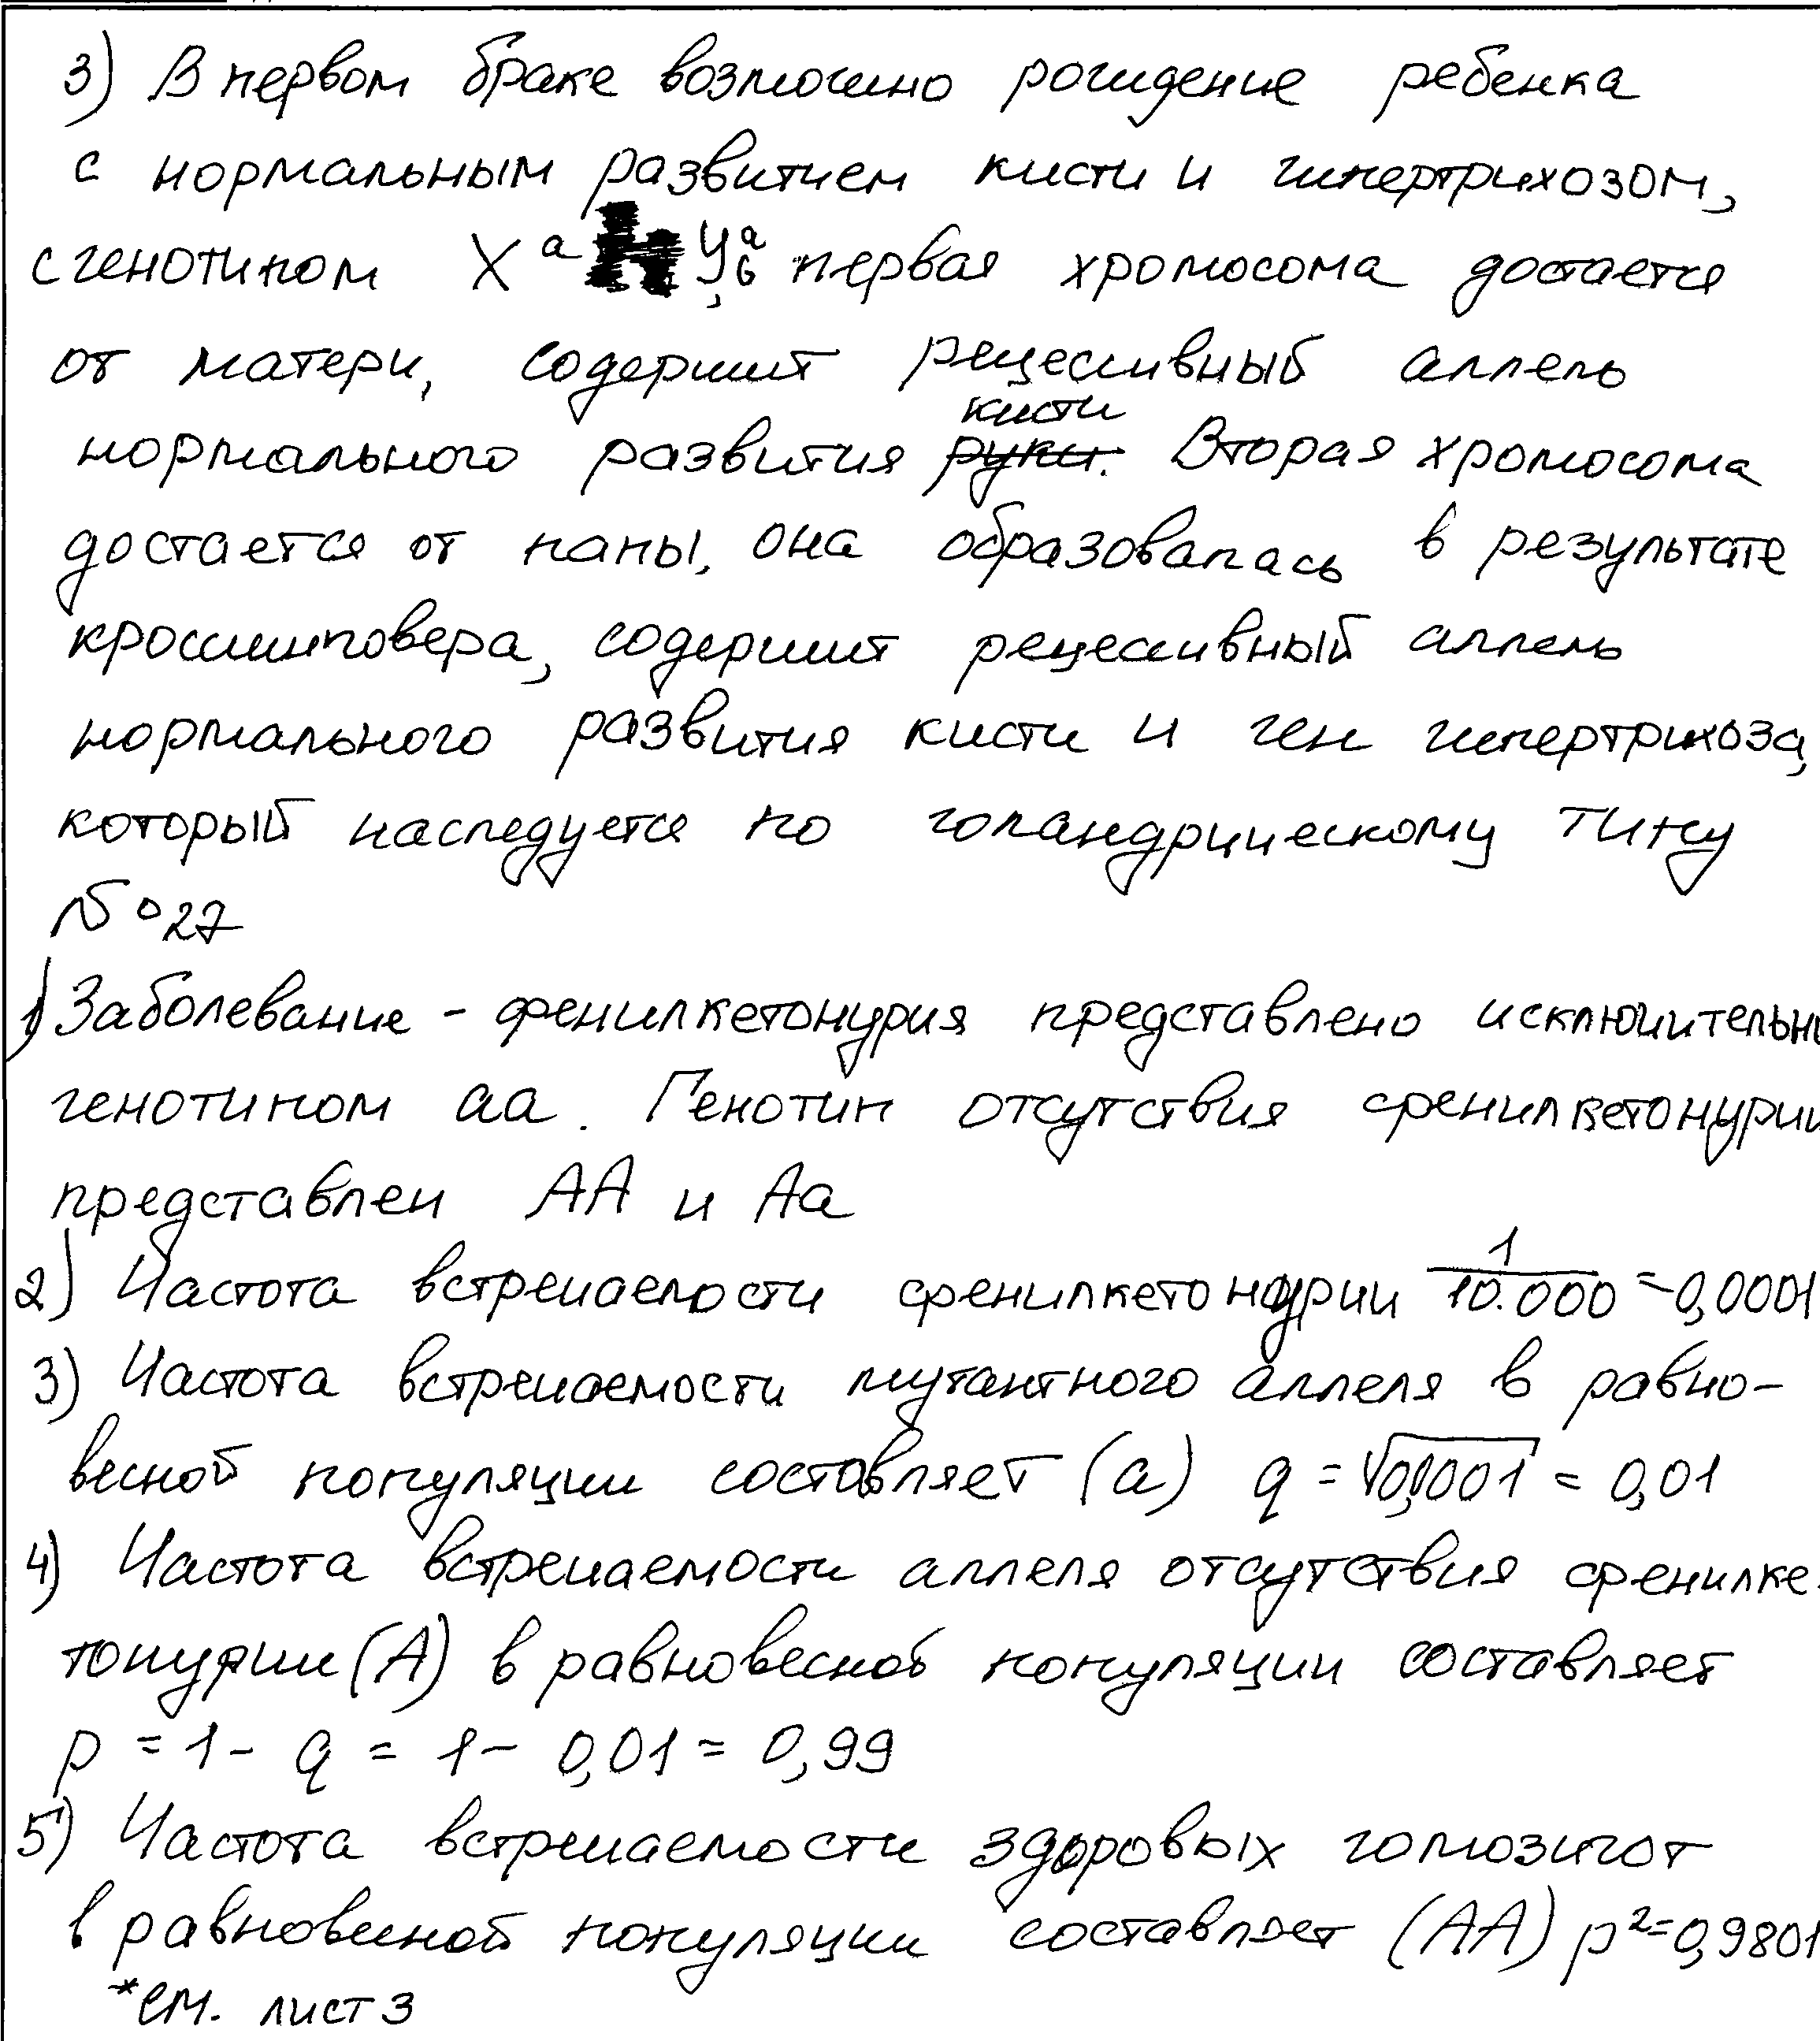 3) В первом браке возможно рождение ребенка
с нормальным развитием кисти и гипертрихозом,
с генотипом Xᵃ Yᵃб, первая хромосома достается
от матери, содержит рецессивный аллель
нормального развития кисти. Вторая хромосома
достается от папы, она образовалась в результате
кроссинговера, содержит рецессивный аллель
нормального развития кисти и ген гипертрихоза,
который наследуется по голандрическому типу
№27
1) Заболевание - фенилкетонурия представлено исключительно
генотипом аа. Генотип отсутствия фенилкетонурии
представлен АА и Аа
2) Частота встречаемости фенилкетонурии 1/10.000 = 0,0001
3) Частота встречаемости мутантного аллеля в равно-
весной популяции составляет (а) q = √0,0001 = 0,01
4) Частота встречаемости аллеля отсутствия фенилке-
тонурии (А) в равновесной популяции составляет
p = 1 - q = 1 - 0,01 = 0,99
5) Частота встречаемости здоровых гомозигот
в равновесной популяции составляет (АА) p² = 0,9801
*см. лист 3